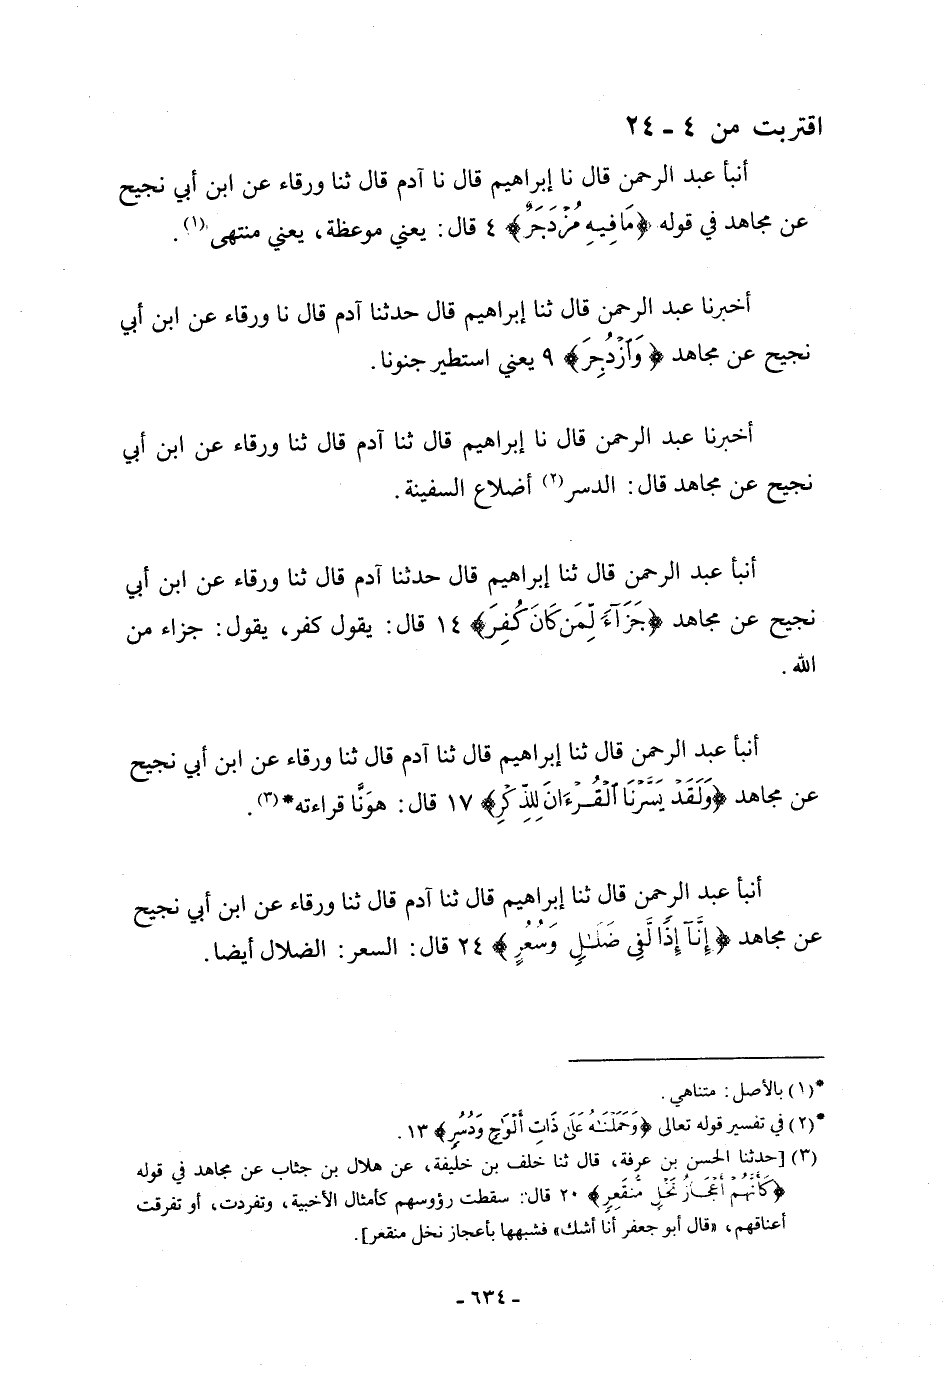 اقتربت من ٤ - ٢٤
أنبأ عبد الرحمن قال نا إبراهيم قال نا آدم قال ثنا ورقاء عن ابن أبي نجيح
عن مجاهد في قوله ﴿مَا فِيهِ مُزْدَجَرٌ﴾ ٤ قال: يعني موعظة، يعني منتهى(١).
أخبرنا عبد الرحمن قال ثنا إبراهيم قال حدثنا آدم قال نا ورقاء عن ابن أبي
نجيح عن مجاهد ﴿وَٱزْدُجِرَ﴾ ٩ يعني استطير جنونا.
أخبرنا عبد الرحمن قال نا إبراهيم قال ثنا آدم قال ثنا ورقاء عن ابن أبي
نجيح عن مجاهد قال: الدسر(٢) أضلاع السفينة.
أنبأ عبد الرحمن قال ثنا إبراهيم قال حدثنا آدم قال ثنا ورقاء عن ابن أبي
نجيح عن مجاهد ﴿جَزَآءً لِّمَن كَانَ كُفِرَ﴾ ١٤ قال: يقول كفر، يقول: جزاء من
الله.
أنبأ عبد الرحمن قال ثنا إبراهيم قال ثنا آدم قال ثنا ورقاء عن ابن أبي نجيح
عن مجاهد ﴿وَلَقَدْ يَسَّرْنَا ٱلْقُرْءَانَ لِلذِّكْرِ﴾ ١٧ قال: هوَنَّا قراءته*(٣).
أنبأ عبد الرحمن قال ثنا إبراهيم قال ثنا آدم قال ثنا ورقاء عن ابن أبي نجيح
عن مجاهد ﴿إِنَّآ إِذًا لَّفِى ضَلَٰلٍ وَسُعُرٍ﴾ ٢٤ قال: السعر: الضلال أيضا.
*(١) بالأصل: متناهي.
*(٢) في تفسير قوله تعالى ﴿وَحَمَلْنَٰهُ عَلَىٰ ذَاتِ أَلْوَٰحٍ وَدُسُرٍ﴾ ١٣.
(٣) [حدثنا الحسن بن عرفة، قال ثنا خلف بن خليفة، عن هلال بن جثاب عن مجاهد في قوله
﴿كَأَنَّهُمْ أَعْجَازُ نَخْلٍ مُّنقَعِرٍ﴾ ٢٠ قال: سقطت رؤوسهم كأمثال الأخبية، وتفردت، أو تفرقت
أعناقهم، «قال أبو جعفر أنا أشك» فشبهها بأعجاز نخل منقعر].
- ٦٣٤ -